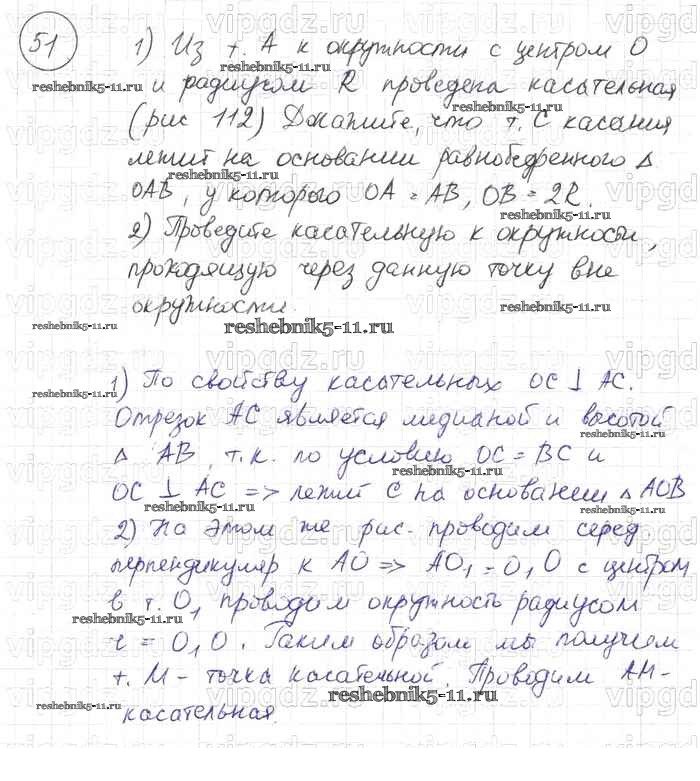 51
1) Из т. А к окружности с центром О
и радиусом R проведена касательная
(рис 112) Докажите, что т. С касания
лежит на основании равнобедренного Δ
ОАВ, у которого ОА = АВ, ОВ = 2R.
2) Проведите касательную к окружности,
проходящую через данную точку вне
окружности.
reshebnik5-11.ru
1) По свойству касательных ОС ⊥ АС.
Отрезок АС является медианой и высотой
Δ АВ, т.к. по условию ОС = ВС и
ОС ⊥ АС => лежит С на основании Δ АОВ
2) На этом же рис. проводим серед.
перпендикуляр к АО => АО₁ = О₁О с центром
в т. О₁ проводим окружность радиусом
r = О₁О. Таким образом мы получаем
т. М - точка касательной. Проводим АМ-
касательная.
reshebnik5-11.ru